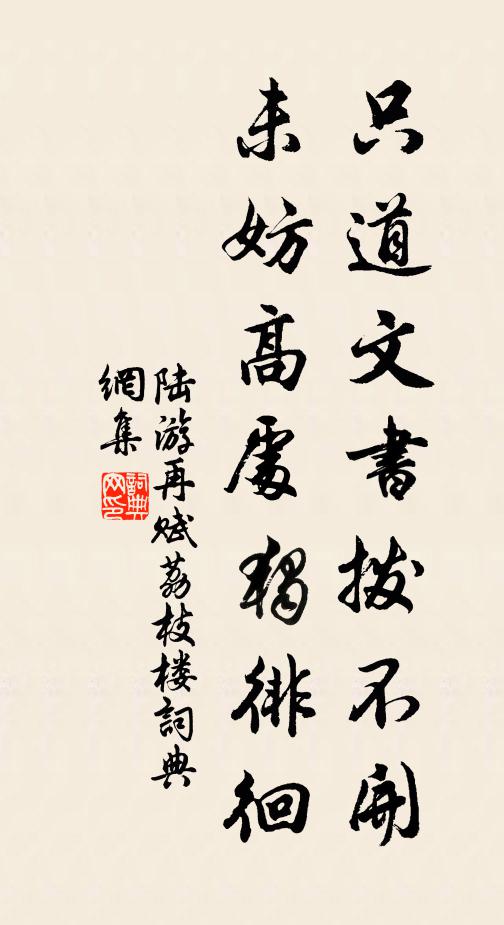 只道文書撥不開
未妨高處獨徘徊
陸游再賦荔枝樓詞典
網集
詞典
网印